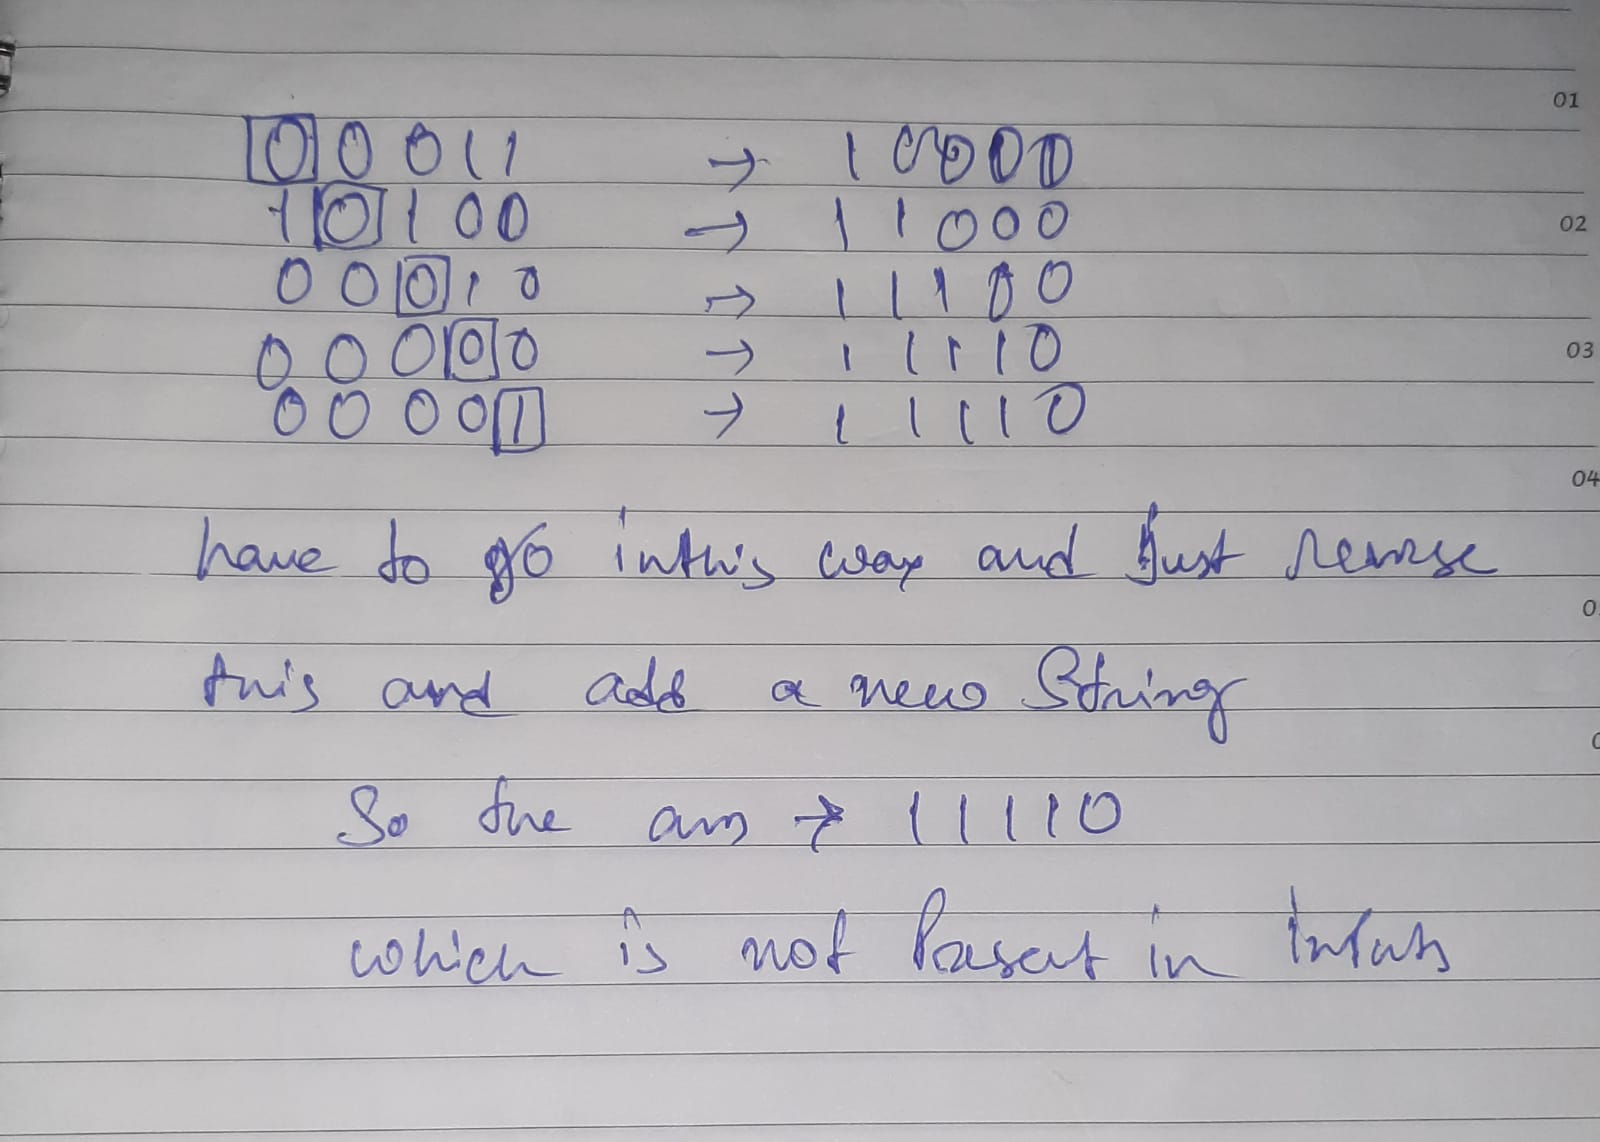 01
0 0 0 1 1 → 1 0 0 0 0
1 0 1 0 0 → 1 1 0 0 0
02
0 0 0 1 0 → 1 1 1 0 0
0 0 0 0 0 → 1 1 1 1 0
03
0 0 0 0 1 → 1 1 1 1 0
04
have to go in this way and Just reverse
0
this and add a new String
0
So the ans → 1 1 1 1 0
which is not Present in Inputs